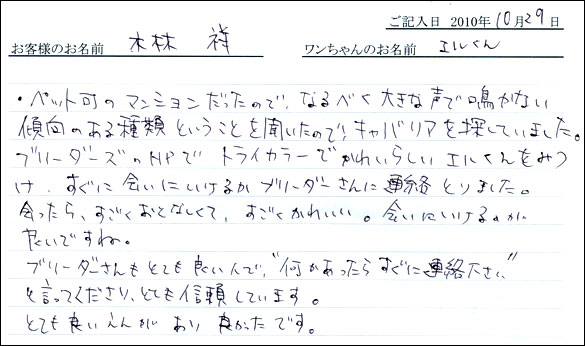 ご記入日 2010年10月29日
お客様のお名前 木林 祥 ワンちゃんのお名前 エルくん
・ペット可のマンションだったので、なるべく大きな声で鳴かない
傾向のある種類ということを聞いたので、キャバリアを探していました。
ブリーダーズのHPで トライカラーでかわいらしいエルくんをみつ
け、すぐに会いにいけるかブリーダーさんに連絡とりました。
会ったら、すごくおとなしくて、すごくかわいい。会いにいけるのが
良いですね。
ブリーダーさんもとても良い人で、"何かあったらすぐに連絡下さい"
と言ってくださり、とても信頼しています。
とても良いえんがあり 良かったです。